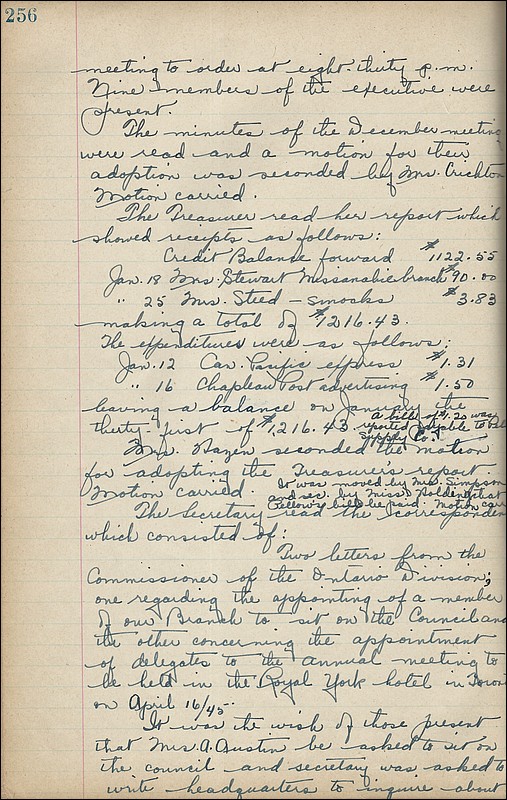 256
meeting to order at eight-thirty p.m.
Nine members of the executive were
present.
The minutes of the December meeting
were read and a motion for their
adoption was seconded by Mrs. Crichton
Motion carried.
The Treasurer read her report which
showed receipts as follows:
Credit Balance forward $1122.55
Jan. 18 Mrs. Stewart Missanabie branch $90.00
" 25 Mrs. Steed - smocks $3.83
making a total of $1216.43.
The expenditures were as follows:
Jan. 12 Can. Pacific express $1.31
" 16 Chapleau Post advertising $1.50
leaving a balance on January the
thirty-first of $1,216.43. A bill of $1.20 was
reported payable to
Supply Co.
Mrs. Hazen seconded the motion
for adopting the Treasurer's report.
Motion carried. It was moved by Mrs. Simpson
and sec. by Miss Holden that
bill be paid. Motion carr
The Secretary read the corresponden
which consisted of:
Two letters from the
Commissioner of the Ontario Division;
one regarding the appointing of a member
of our Branch to sit on the Council and
the other concerning the appointment
of delegates to the annual meeting to
be held in the Royal York hotel in Toron
on April 16/45.
It was the wish of those present
that Mrs. A. Austin be asked to sit on
the council and secretary was asked to
write headquarters to inquire about